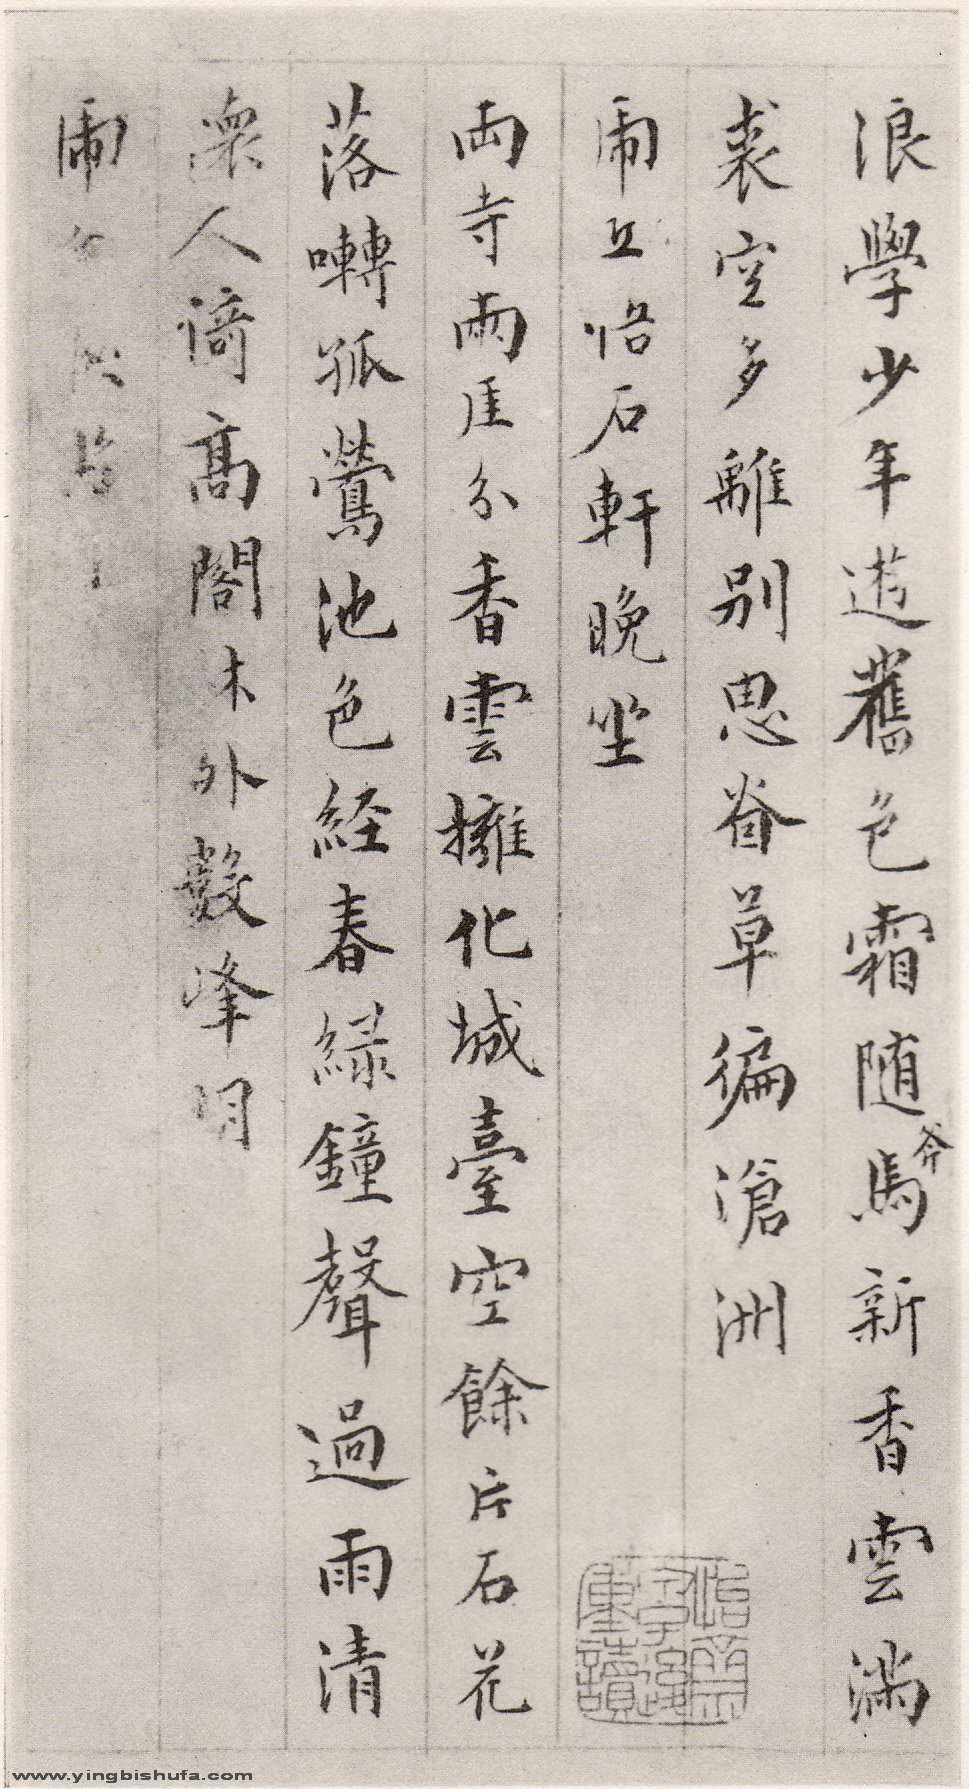 浪學少年遊舊色霜随馬新香雲滿
斧
裘空多離別思着草徧滄洲
虎丘悟石軒晚坐
両寺兩厓分香雲擁化城臺空餘片石花
落囀孤鶯池色経春緑鐘聲過雨清
懷人倚高閣木外數峰明
虎
www.yingbishufa.com